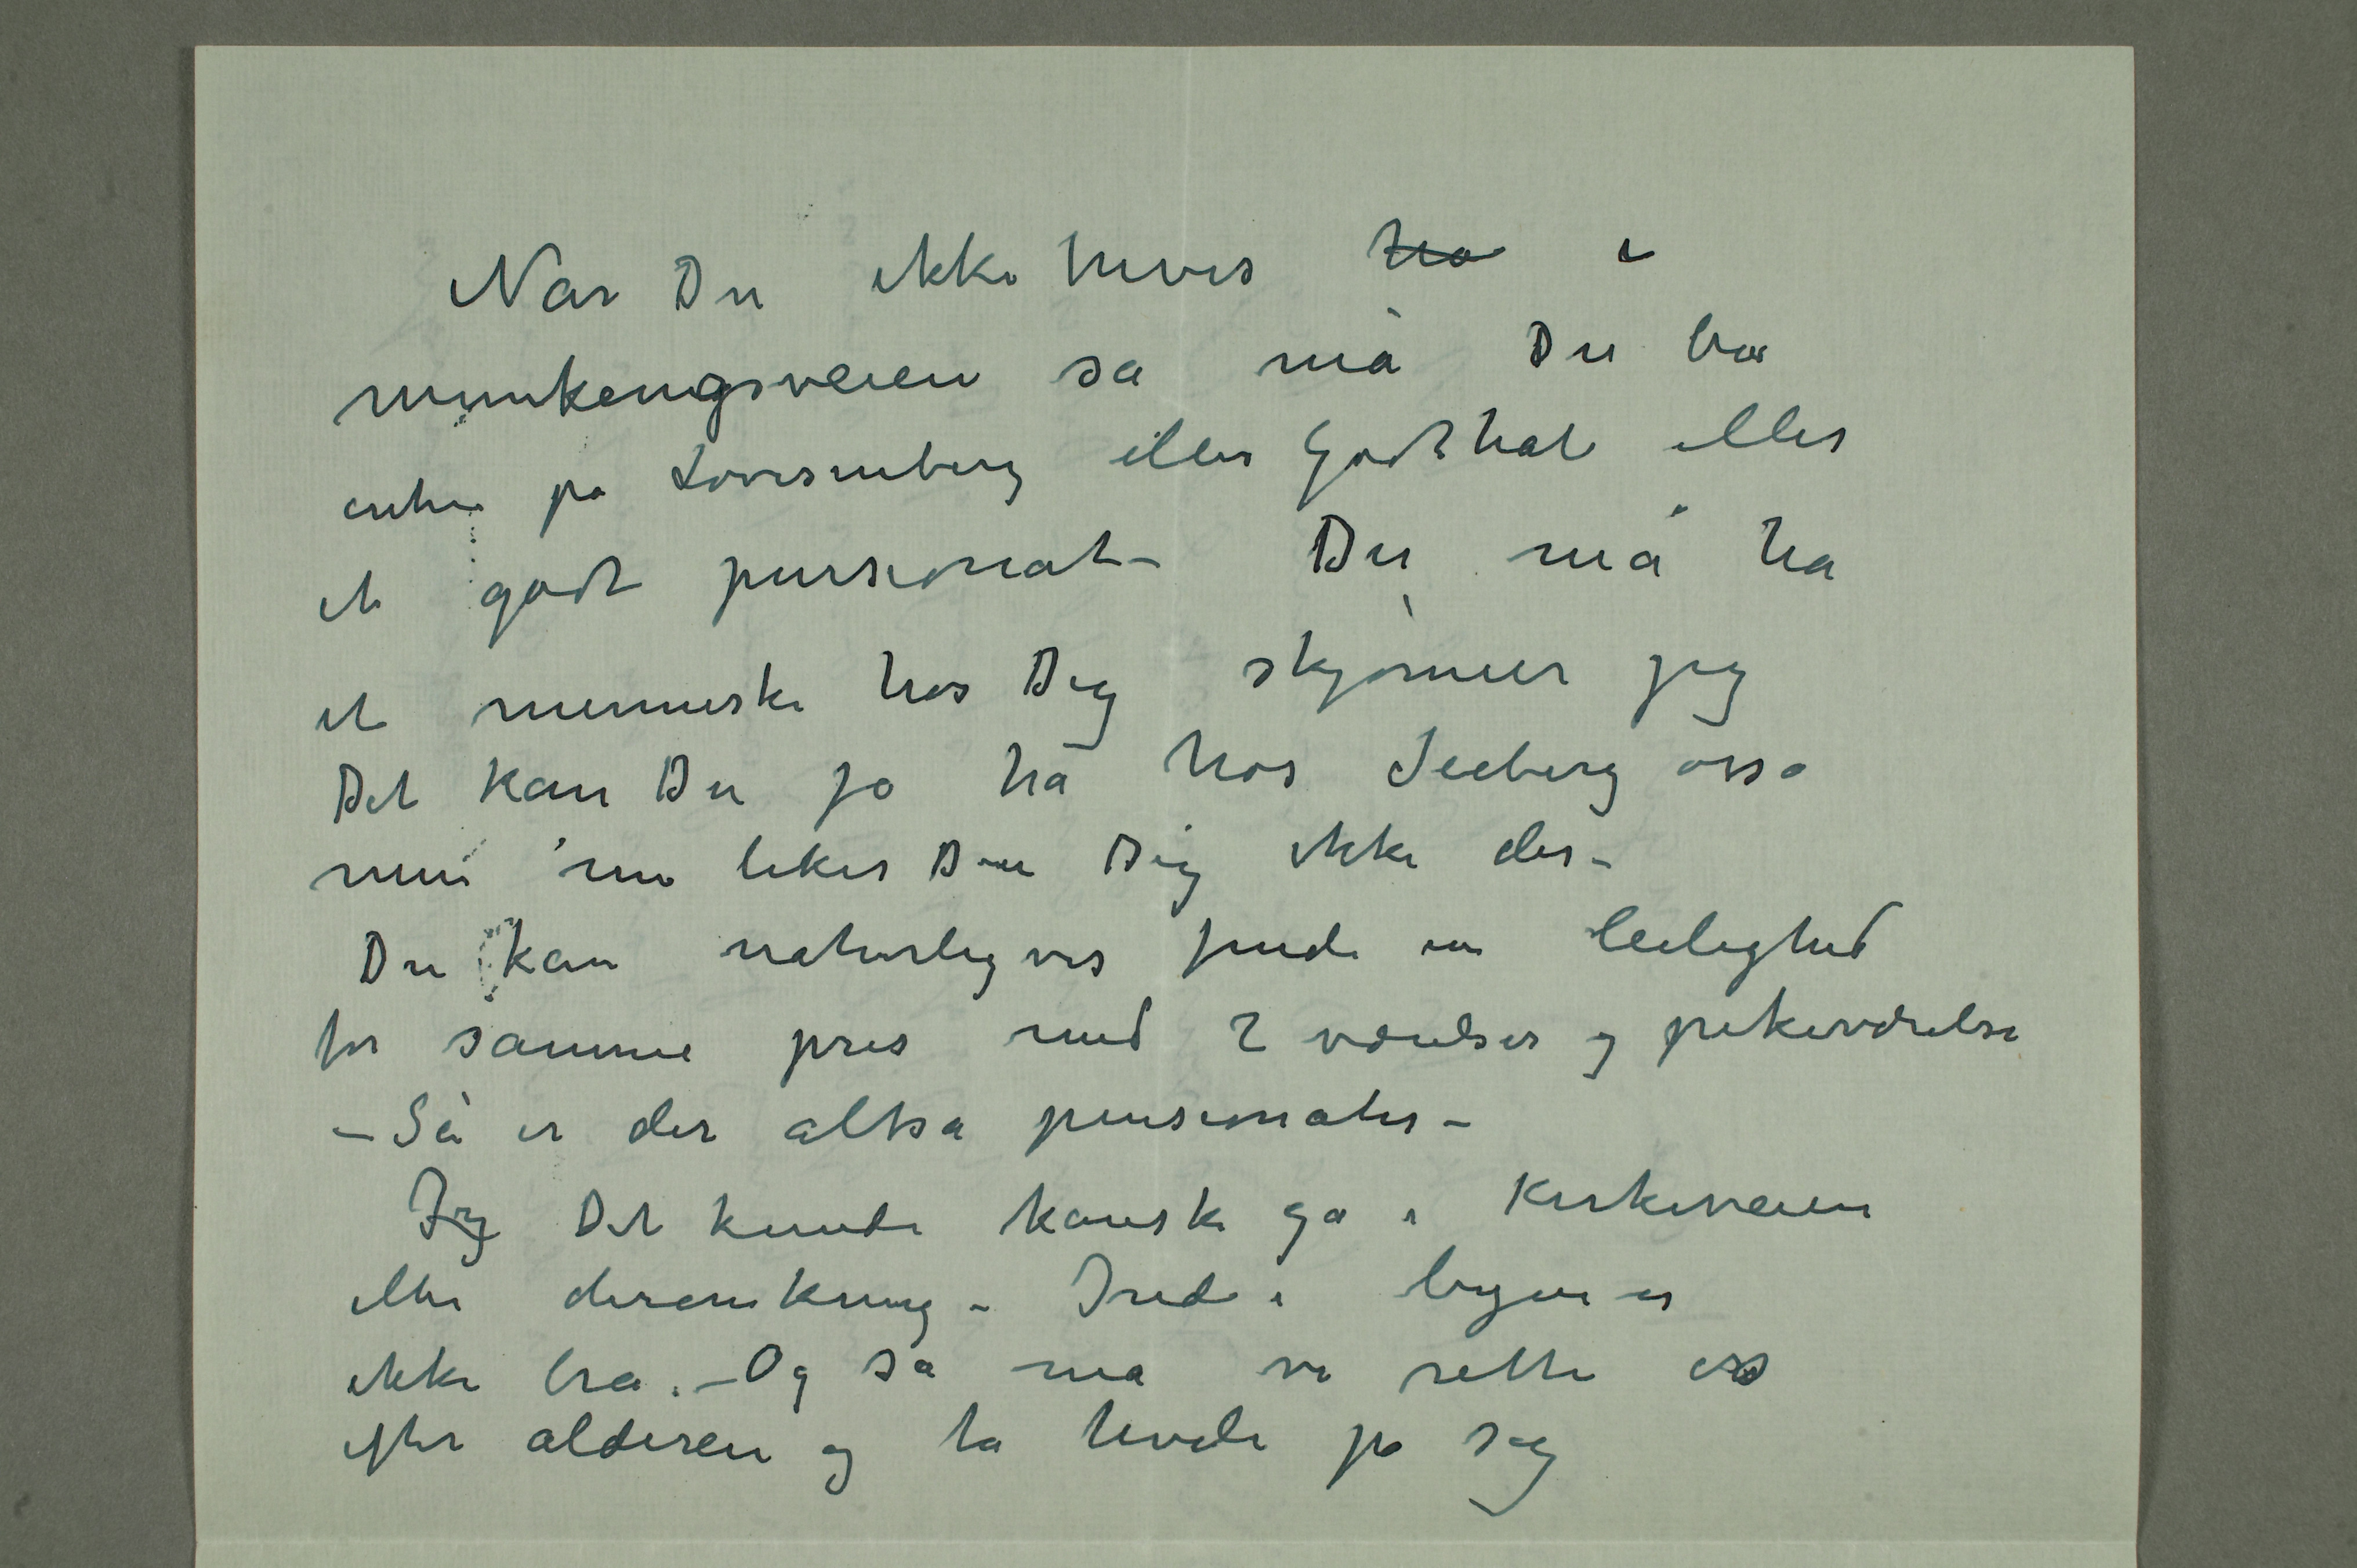 Når Du ikke trives ha i
munkengsveien så må Du bo
enten på Lovisenberg eller Godthåb eller
et godt pensionat – Du må ha
et menneske hos Dig skjønner jeg
Det kan Du jo ha hos Seeberg osså
men nu liker Du Dig ikke der –
Du kan naturligvis finde en leilighed
for samme pris med 2 værelser og pikeværelse
– Så er der altså pensionater –
Jeg Det kunde kanske gå i Kirkeveien
eller deromkring – Inde i byen er
ikke bra. – Og så må vi rette os
efter alderen og ta hvile på sig